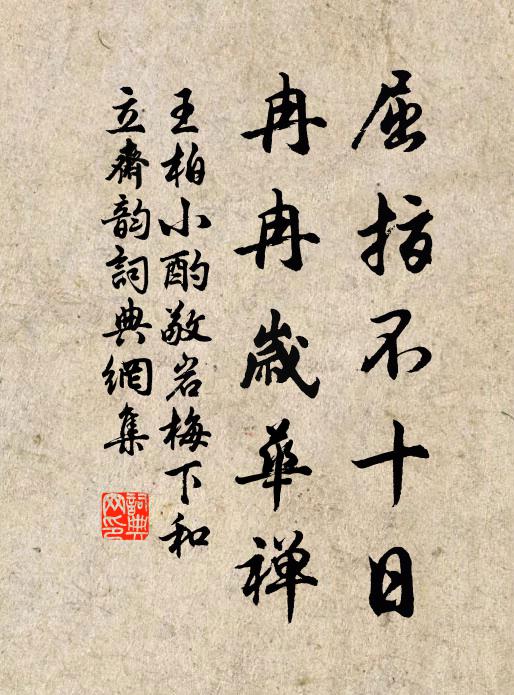 屈指不十日
冉冉歲華禅
王柏小酌敬岩梅下和
立齋韵詞典網集
詞典网印